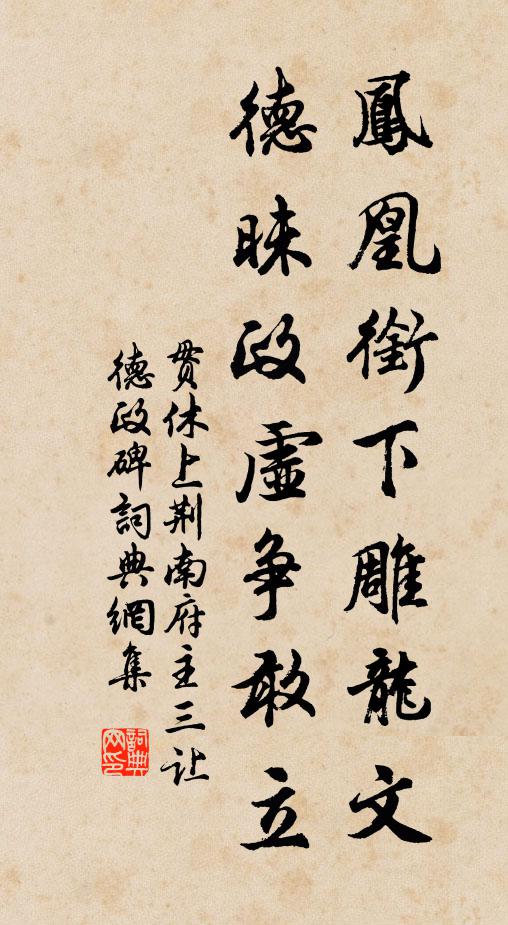 鳳凰銜下雕龍文
德昧政虛爭敢立
貫休上荆南府主三让
德政碑詞典網集
詞典网印